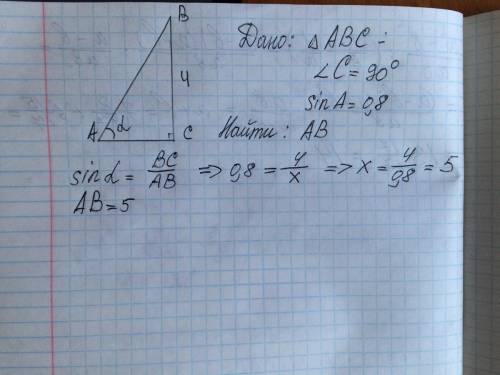 B
Дано: △ABC -
∠C = 90°
4
sin A = 0,8
A α C
Найти: AB
sin α = BC/AB => 0,8 = 4/x => x = 4/0,8 = 5
AB = 5